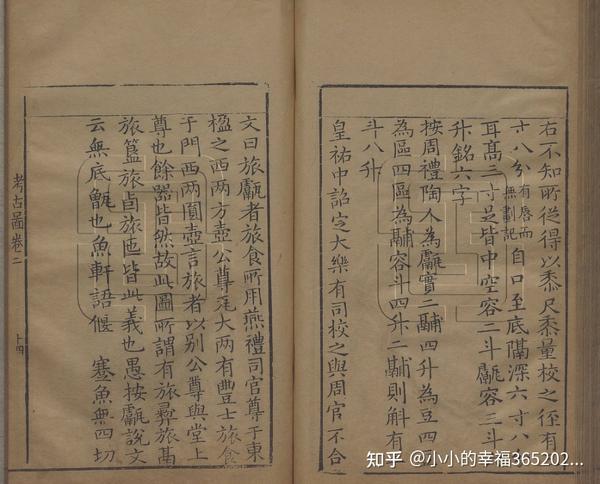 右不知所從得以黍尺黍量校之徑有
寸八分有唇而無劃記自口至底隔深六寸八
耳高三寸足皆中空容二斗甗容三斗
升銘六字
按周禮陶人為甗實二鬴四升為豆四
為區四區為鬴容斗四升二鬴則斛有
斗八升
皇祐中詔定大樂有司校之與周官不合
文曰旅甗者旅食所用燕禮司官尊于東
楹之西兩方壺公尊瓦大兩有豐士旅食
于門西兩圓壺言旅者以別公尊與堂上
尊也餘器皆然故此圖所謂有旅彝旅
旅簠旅卣旅匜皆此義也愚按甗說文
云無底甑也魚軒語偃 蹇魚無四切
考古圖卷二 十四
知乎 @小小的幸福365202...